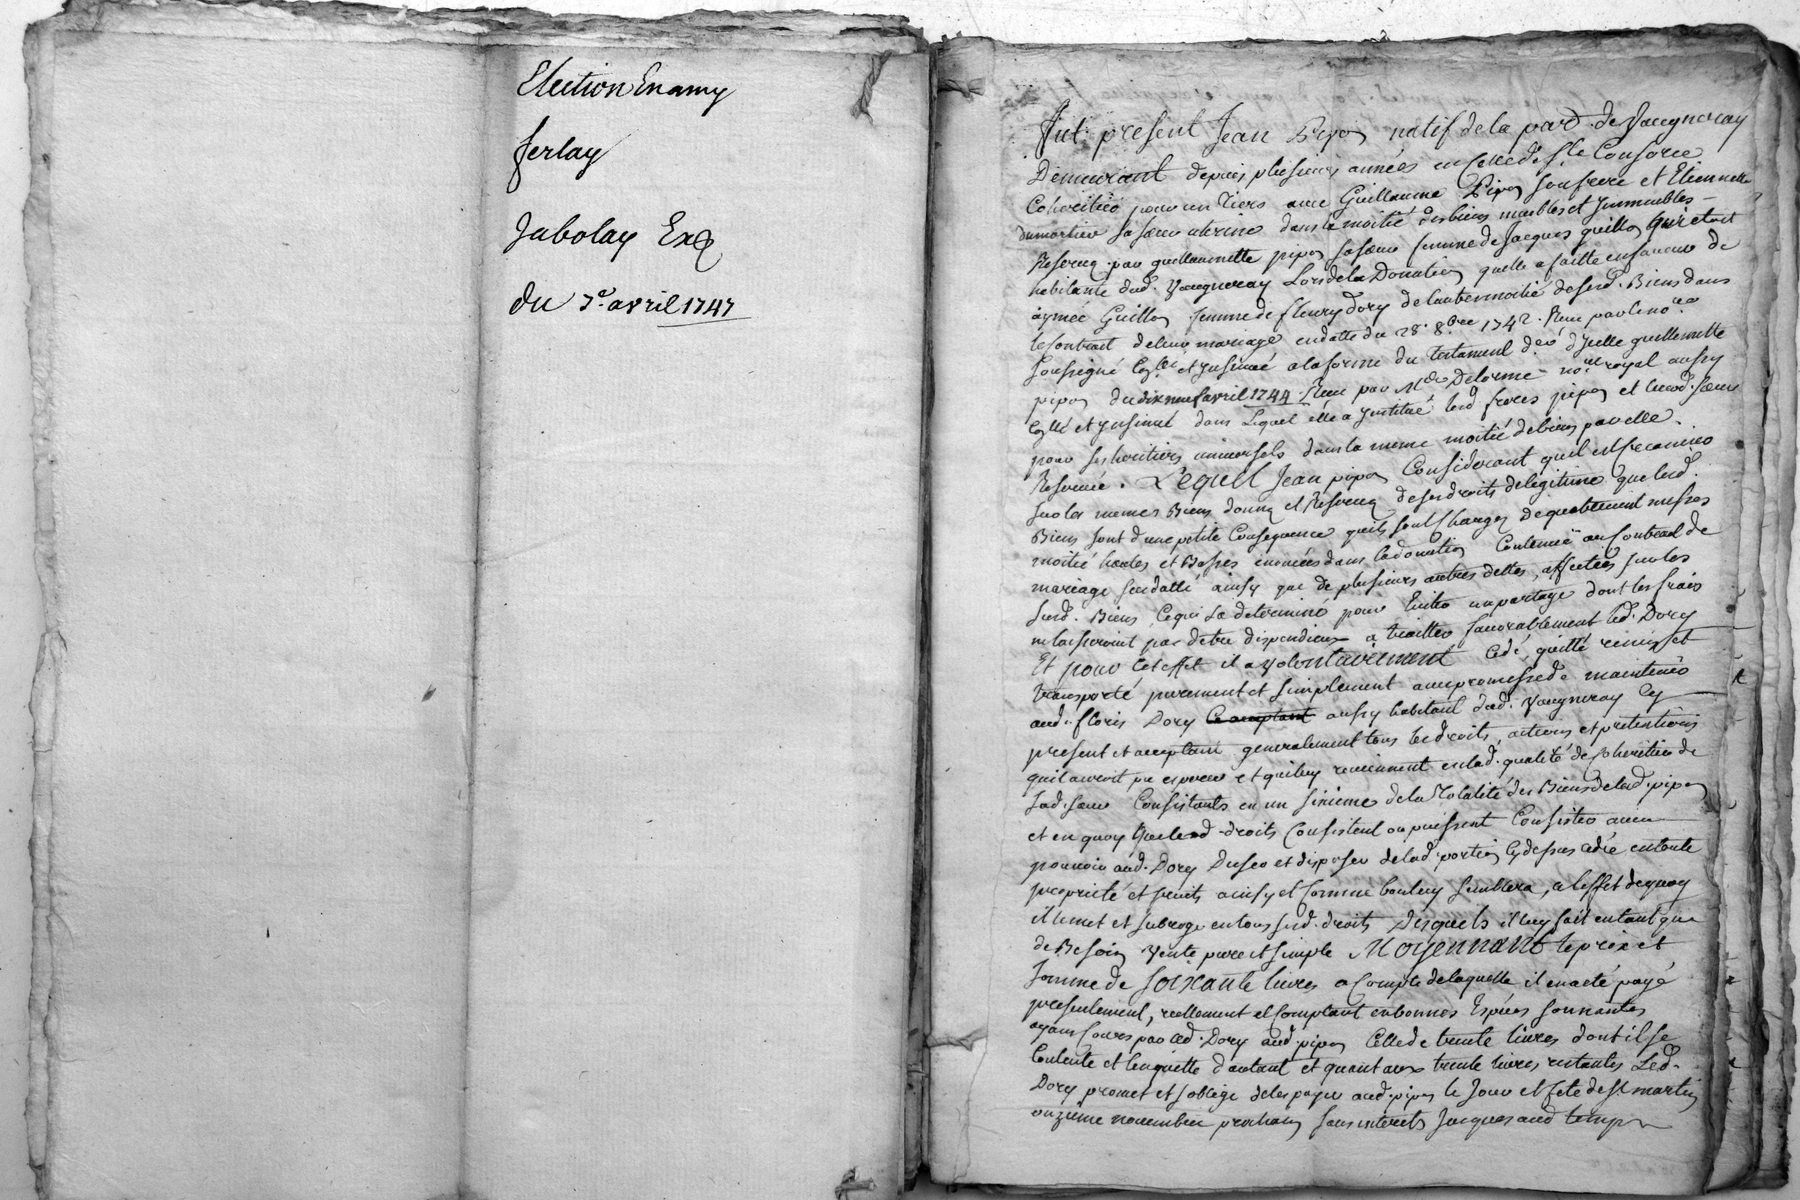 Election Enamy
ferlay
Jabolay Exp
du 7e avril 1747
Fut present Jean Pipon natif de la par. de Vaugneray
Demeurant depuis plusieurs années en celle de Ste Consorce
Coheritier pour un tiers avec Guillaume Pipon son frere et Etiennette
dumortier sa sœur uterine dans la moitié des biens meubles et Immeubles
Reservez par guillaumette pipon sa sœur femme de Jacques guillon quir etoit
habitante dud. Vaugneray Lors de la Donation quelle a faitte en faveur de
aymée Guillon femme de fleury Dory de lautre moitié de sesd. Biens dans
le Contract de leur mariage en datte du 28. 8bre 1742. Receu par le nore
soussigné Collé et Insinué a la forme du testament de d'Icelle guillemette
pipon du dix neuf avril 1744 Receu par Me Delorme nore royal aussy
Collé et Insinué dans Lequel elle a Institué lesd freres pipon et lad. sœur
pour ses heritiers universels dans la meme moitié de biens par elle
Reservée. Lequel Jean pipon Considerant quil est
sur les memes Biens donnez et Reservez de ses droits de legitime que lesd.
Biens sont d'une petite Consequence quils sont chargez de quatre mesures
moitié hautes et Basses enoncées dans la donation Contenuë au Contract de
mariage susdatté ainsy que de plusieurs autres dettes, affectées sur les
susd. Biens, Ce qui La determiné pour Eviter un partage dont les frais
ne laisseroint pas detre dispendieux a traitter favorablement led. Dory
Et pour Cet effet il a Volontairement Cedé, quitté remis et
transporté purement et simplement avec promesse de maintenir
aud. floris Dory Ce acceptant aussy habitant dud. Vaugneray Cy
present et acceptant generalement tous les droits, actions et pretentions
quil auroit pu esperer et qui luy reviennent en lad. qualité de Coheritier de
lad. sœur Consistants en un sixieme de la Totalité des Biens de lad. pipon
et en quoy que lesd droits Consistent ou puissent Consister avec
pouvoir aud. Dory Duser et disposer de lad. portion Cy dessus cedée en toute
proprieté et fruits ainsy et Comme bon luy semblera, a leffet de quoy
il le met et subroge en tous sesd. droits desquels il luy fait en tant que
de Besoin Vente pure et simple Moyennant le prix et
somme de soixante livres a Compte de laquelle il en a eté payé
presentement, reellement et Comptant en bonnes Espèces sonnantes
ayans Cours par led. Dory aud. pipon Celle de trente livres dont il se
Contente et l'en quitte d'autant et quant aux trente livres restantes Led.
Dory promet et soblige de les payer aud. pipon le Jour et fete de St martin
onzieme novembre prochain sans interets Jusques aud temps